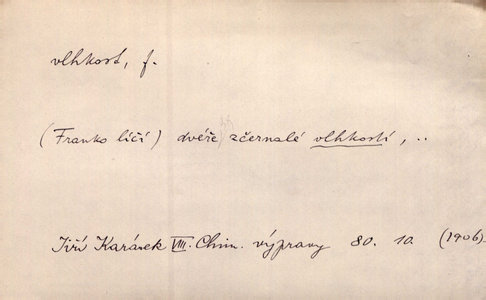 vlhkost, f.
(Franko líčí) dvéře zčernalé vlhkostí, ..
Jiří Karásek VIII. Chim. výpravy 80. 10 (1906)